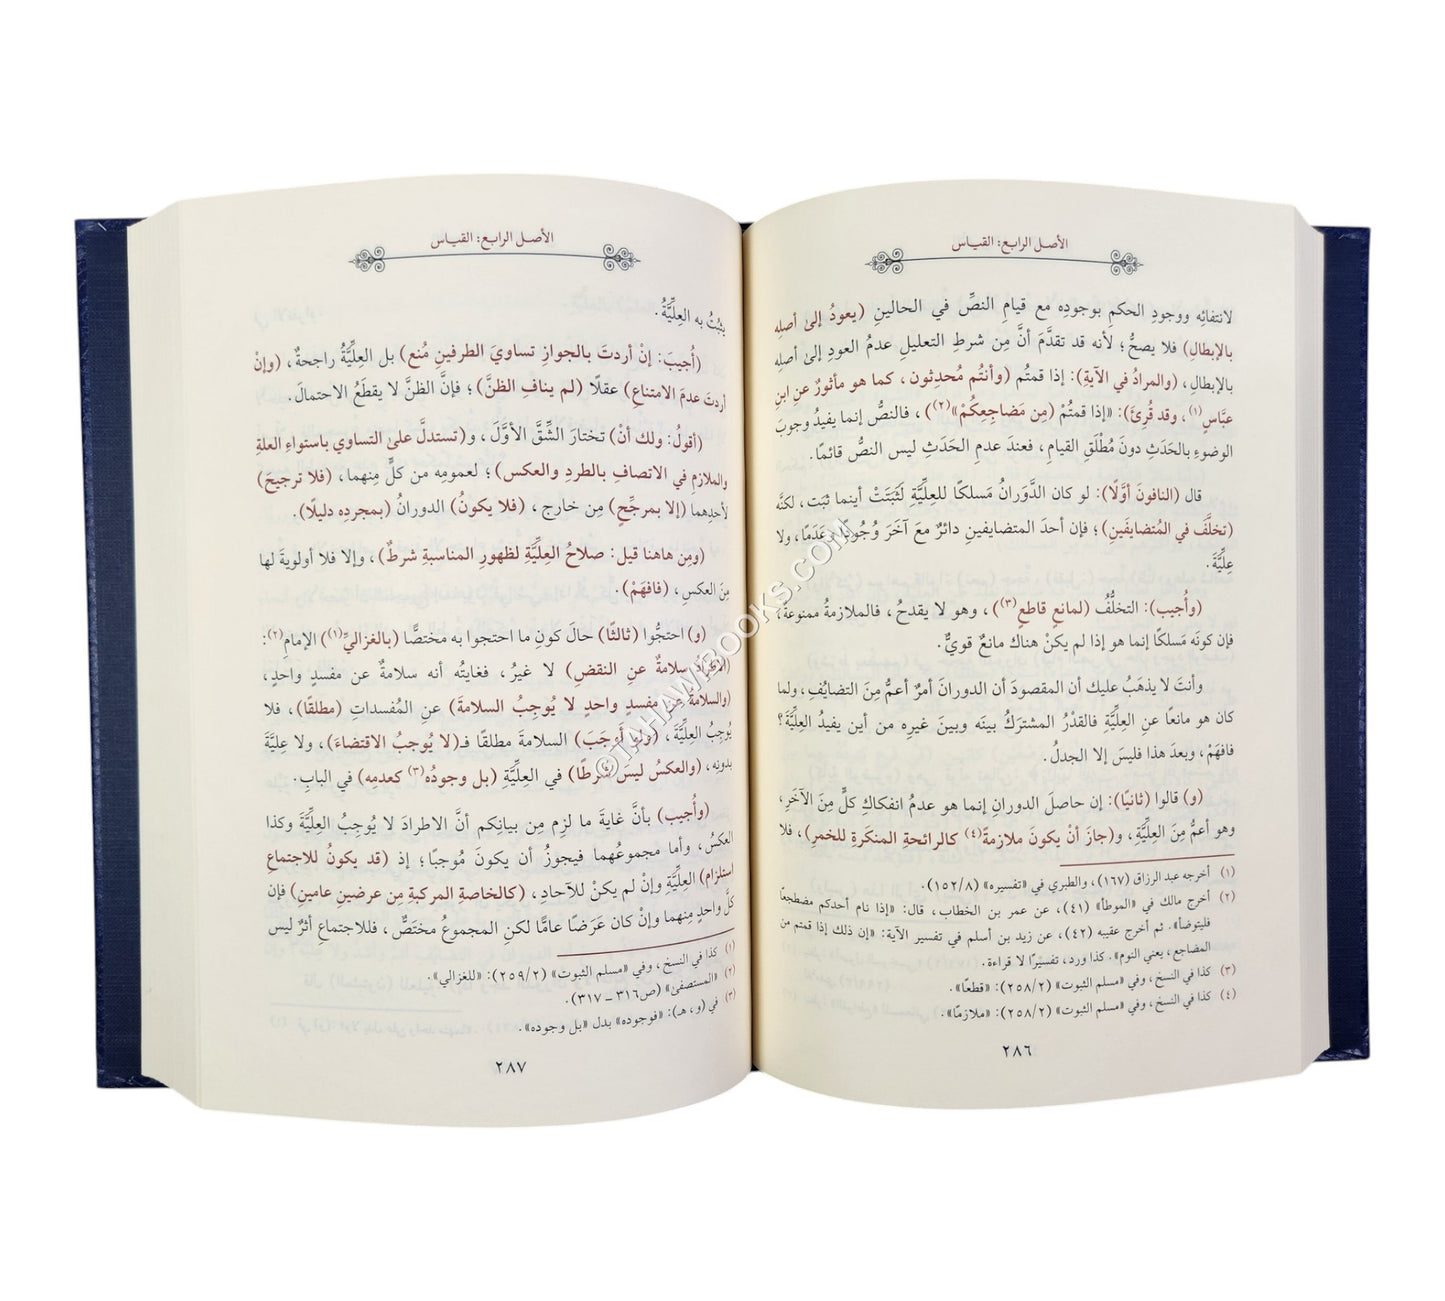 الأصل الرابع: القياس
لانتفائِه ووجودِ الحكمِ بوجودِه مع قيامِ النصِّ في الحالينِ (يعودُ إلىٰ أصلِه
بالإبطالِ) فلا يصحُّ؛ لأنه قد تقدَّمَ أنَّ مِن شرطِ التعليلِ عدمُ العودِ إلىٰ أصلِه
بالإبطالِ، (والمرادُ في الآيةِ): إذا قمتُم (وأنتُم مُحدِثون، كما هو مأثورٌ عنِ ابنِ
عبَّاسٍ(١)، وقد قُرِئَ): «إذا قمتُمْ (مِن مَضاجِعِكُمْ»(٢))، فالنصُّ إنما يفيدُ وجوبَ
الوضوءِ بالحَدَثِ دونَ مُطْلَقِ القيامِ، فعندَ عدمِ الحَدَثِ ليس النصُّ قائمًا.
قال (النافونَ أوَّلًا): لو كان الدَّوَرانُ مَسلكًا للعِلِّيَّةِ لَثَبَتَتْ أينما ثبَت، لكنَّه
(تخلَّفَ في المُتضايِفَينِ)؛ فإن أحدَ المتضايفينِ دائرٌ معَ آخَرَ وُجُودًا وعَدَمًا، ولا
عِلِّيَّةَ.
(وأُجيب): التخلُّفُ (لمانعٍ قاطعٍ(٣))، وهو لا يقدحُ، فالملازمةُ ممنوعةٌ،
فإن كونَه مَسلكًا إنما هو إذا لم يكنْ هناك مانعٌ قويٌّ.
وأنتَ لا يذهَبُ عليك أن المقصودَ أن الدورانَ أمرٌ أعمُّ مِنَ التضايُفِ، ولما
كان هو مانعًا عنِ العِلِّيَّةِ فالقدْرُ المشترَكُ بينَه وبينَ غيرِه من أين يفيدُ العِلِّيَّةَ؟
فافهَمْ، وبعدَ هذا فليسَ إلا الجدلُ.
(و) قالوا (ثانيًا): إن حاصلَ الدورانِ إنما هو عدمُ انفكاكِ كلٍّ مِنَ الآخَرِ،
وهو أعمُّ مِنَ العِلِّيَّةِ، و(جازَ أنْ يكونَ ملازمةً(٤) كالرائحةِ المنكَرةِ للخمرِ)، فلا
(١) أخرجه عبد الرزاق (١٦٧)، والطبري في «تفسيره» (٨/١٥٢).
(٢) أخرج مالك في «الموطأ» (٤١)، عن عمر بن الخطاب، قال: «إذا نام أحدكم مضطجعًا
فليتوضأ». ثم أخرج عقيبه (٤٢)، عن زيد بن أسلم في تفسير الآية: «إن ذلك إذا قمتم من
المضاجع، يعني النوم». كذا ورد، تفسيرًا لا قراءة.
(٣) كذا في النسخ، وفي «مسلم الثبوت» (٢/٢٥٨): «قطعًا».
(٤) كذا في النسخ، وفي «مسلم الثبوت» (٢/٢٥٨): «ملازمًا».
٢٨٦
الأصل الرابع: القياس
يثبُتُ به العِلِّيَّةُ.
(أُجيبَ: إنْ أردتَ بالجوازِ تساويَ الطرفينِ مُنع) بل العِلِّيَّةُ راجحةٌ، (وإنْ
أردتَ عدمَ الامتناعِ) عقلًا (لم ينافِ الظنَّ)؛ فإنَّ الظنَّ لا يقطَعُ الاحتمالَ.
(أقولُ: ولك أنْ) تختارَ الشِّقَّ الأوَّلَ، و(تستدلَّ علىٰ التساوي باستواءِ العلةِ
والملازمِ في الاتصافِ بالطردِ والعكسِ)؛ لعمومِه من كلٍّ مِنهما، (فلا ترجيحَ)
لأحدِهما (إلا بمرجِّحٍ) مِن خارج، (فلا يكونُ) الدورانُ (بمجردِه دليلًا).
(ومِن هاهنا قيل: صلاحُ العِلِّيَّةِ لظهورِ المناسبةِ شرطٌ)، وإلا فلا أولويةَ لها
مِنَ العكسِ، (فافهَمْ).
(و) احتجُّوا (ثالثًا) حالَ كونِ ما احتجوا به مختصًّا (بالغزاليِّ(١)) الإمامِ(٢):
(الاطرادُ سلامةٌ عنِ النقضِ) لا غيرُ، فغايتُه أنه سلامةٌ عن مفسدٍ واحدٍ،
(والسلامةُ عن مفسدٍ واحدٍ لا يُوجِبُ السلامةَ) عنِ المُفسداتِ (مطلقًا)، فلا
يُوجِبُ العِلِّيَّةَ، (ولو أَوجَبَ) السلامةَ مطلقًا فـ(لا يُوجبُ الاقتضاءَ)، ولا عِليَّةَ
بدونِه، (والعكسُ ليس شرطًا) في العِليَّةِ (بل وجودُه(٣) كعدمِه) في البابِ.
(وأُجيب) بأنَّ غايةَ ما لزِم مِن بيانِكم أنَّ الاطرادَ لا يُوجِبُ العِليَّةَ وكذا
العكسُ، وأما مجموعُهما فيجوزُ أن يكونَ مُوجبًا؛ إذ (قد يكونُ للاجتماعِ
استلزام) العِليَّةِ وإنْ لم يكنْ للآحادِ، (كالخاصةِ المركبةِ مِن عرضينِ عامينِ) فإن
كلَّ واحدٍ مِنهما وإنْ كان عَرَضًا عامًّا لكنِ المجموعُ مختصٌّ، فللاجتماعِ أثرٌ ليس
(١) كذا في النسخ، وفي «مسلم الثبوت» (٢/٢٥٩): «للغزالي».
(٢) «المستصفىٰ» (ص٣١٦ – ٣١٧).
(٣) في (و، هـ): «فوجوده» بدل «بل وجوده».
٢٨٧
©TJHAWBOOKS.COM